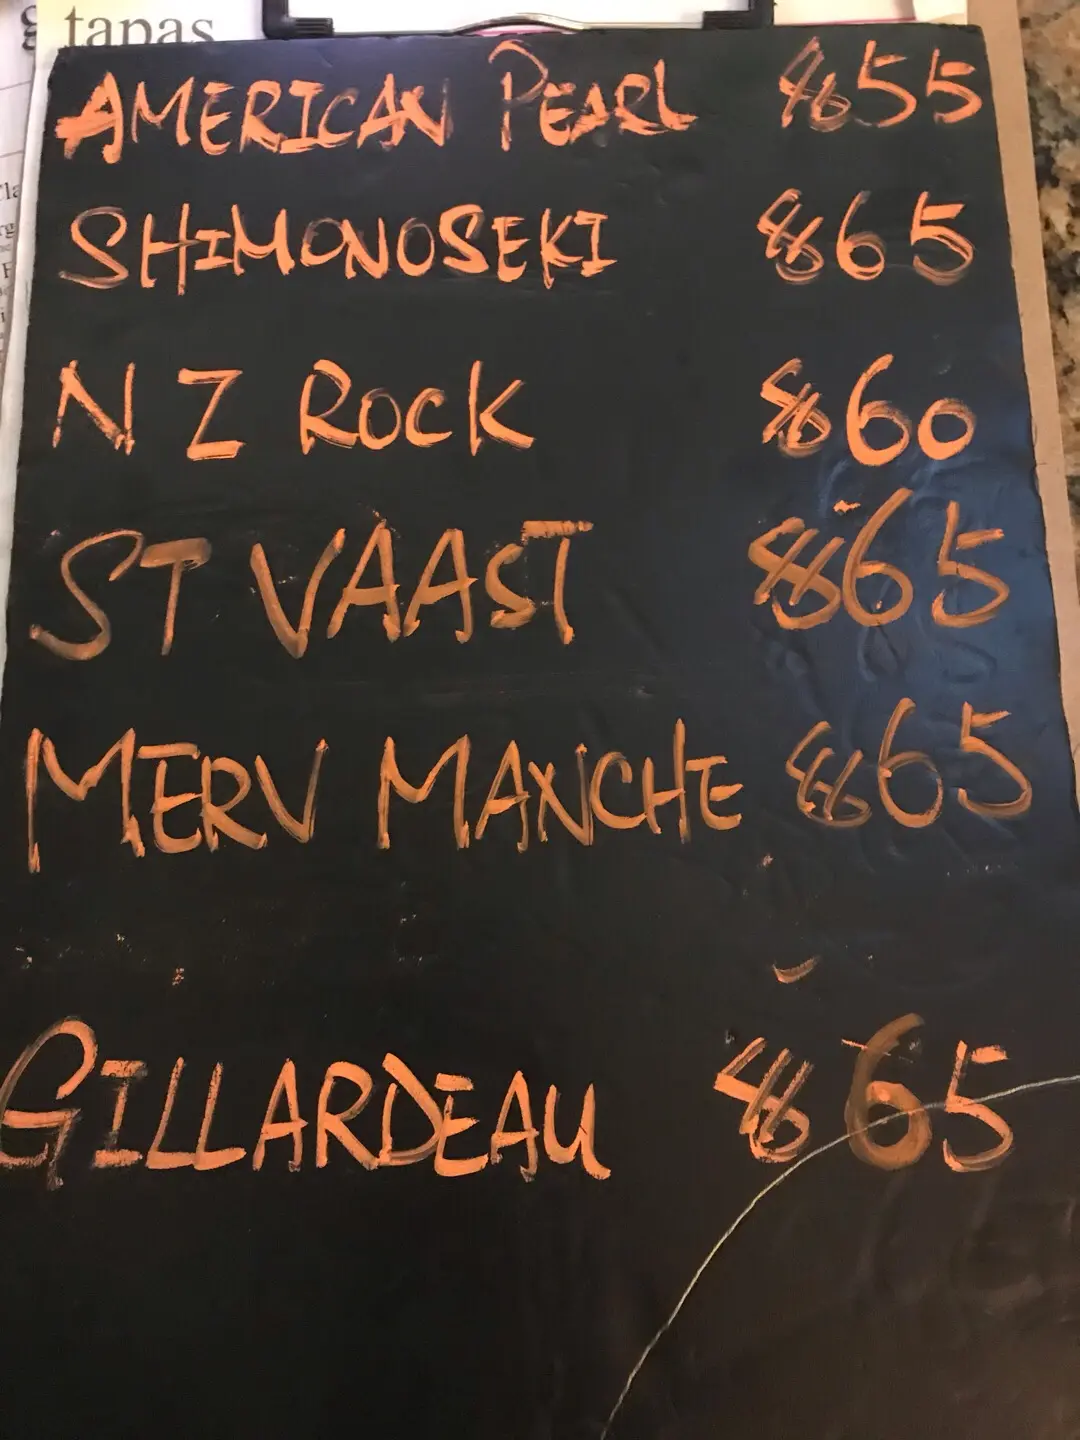 tapas
AMERICAN PEARL $55
SHIMONOSEKI $65
N Z ROCK $60
ST VAAST $65
MERV MANCHE $65
GILLARDEAU $65